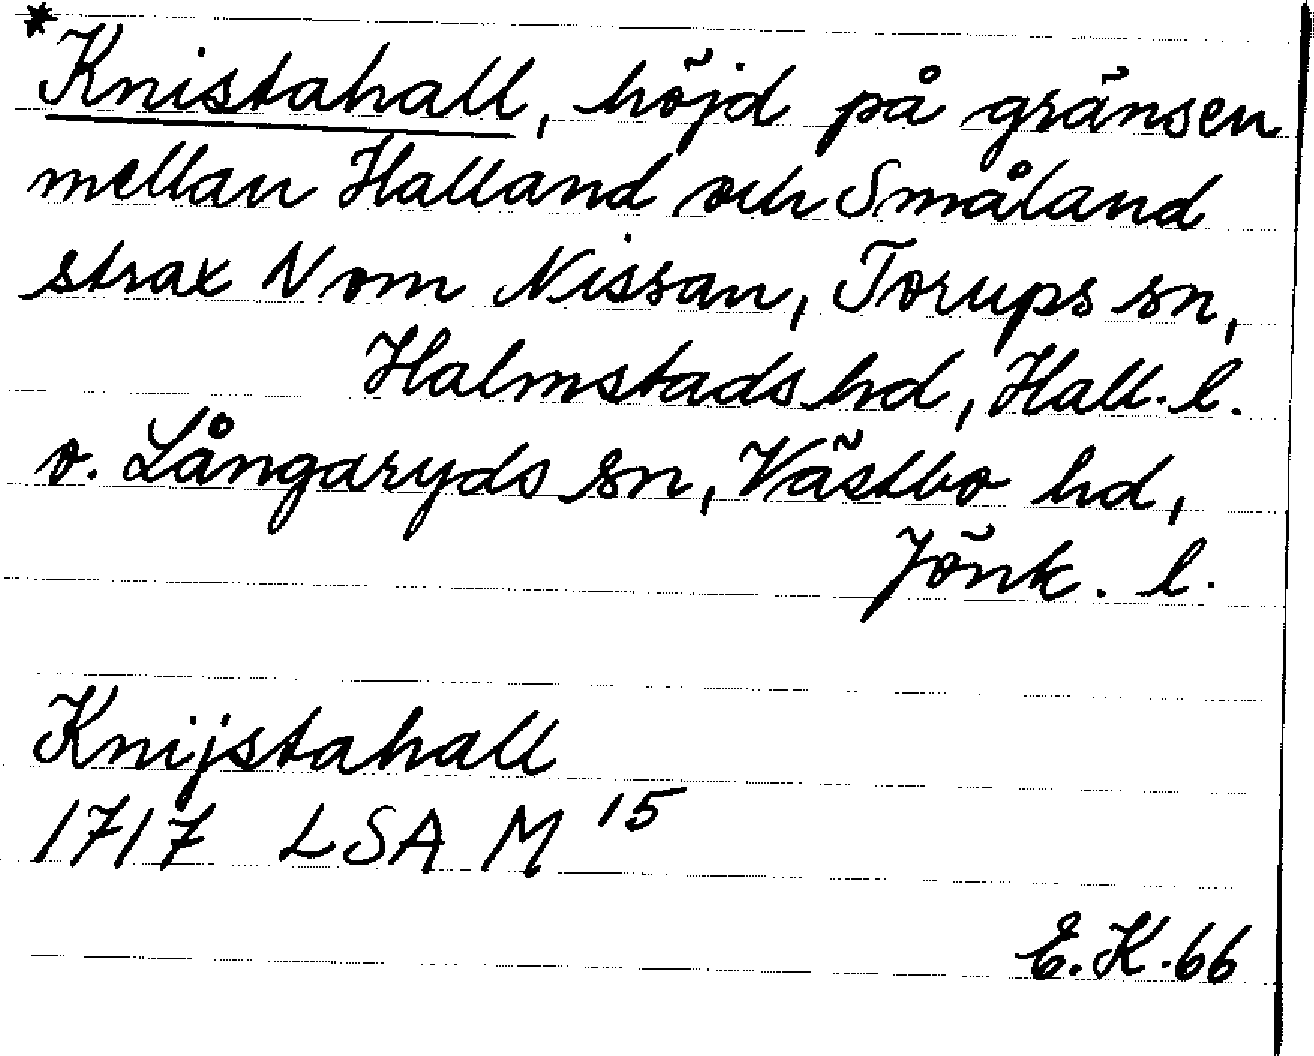 *Knistahall, höjd på gränsen
mellan Halland och Småland
strax V om Nissan, Torups sn,
Halmstads hd, Hall. l.
o. Långaryds sn, Västbo hd,
Jönk. l.
Knijstahall
1717 LSA M 15
E.K. 66